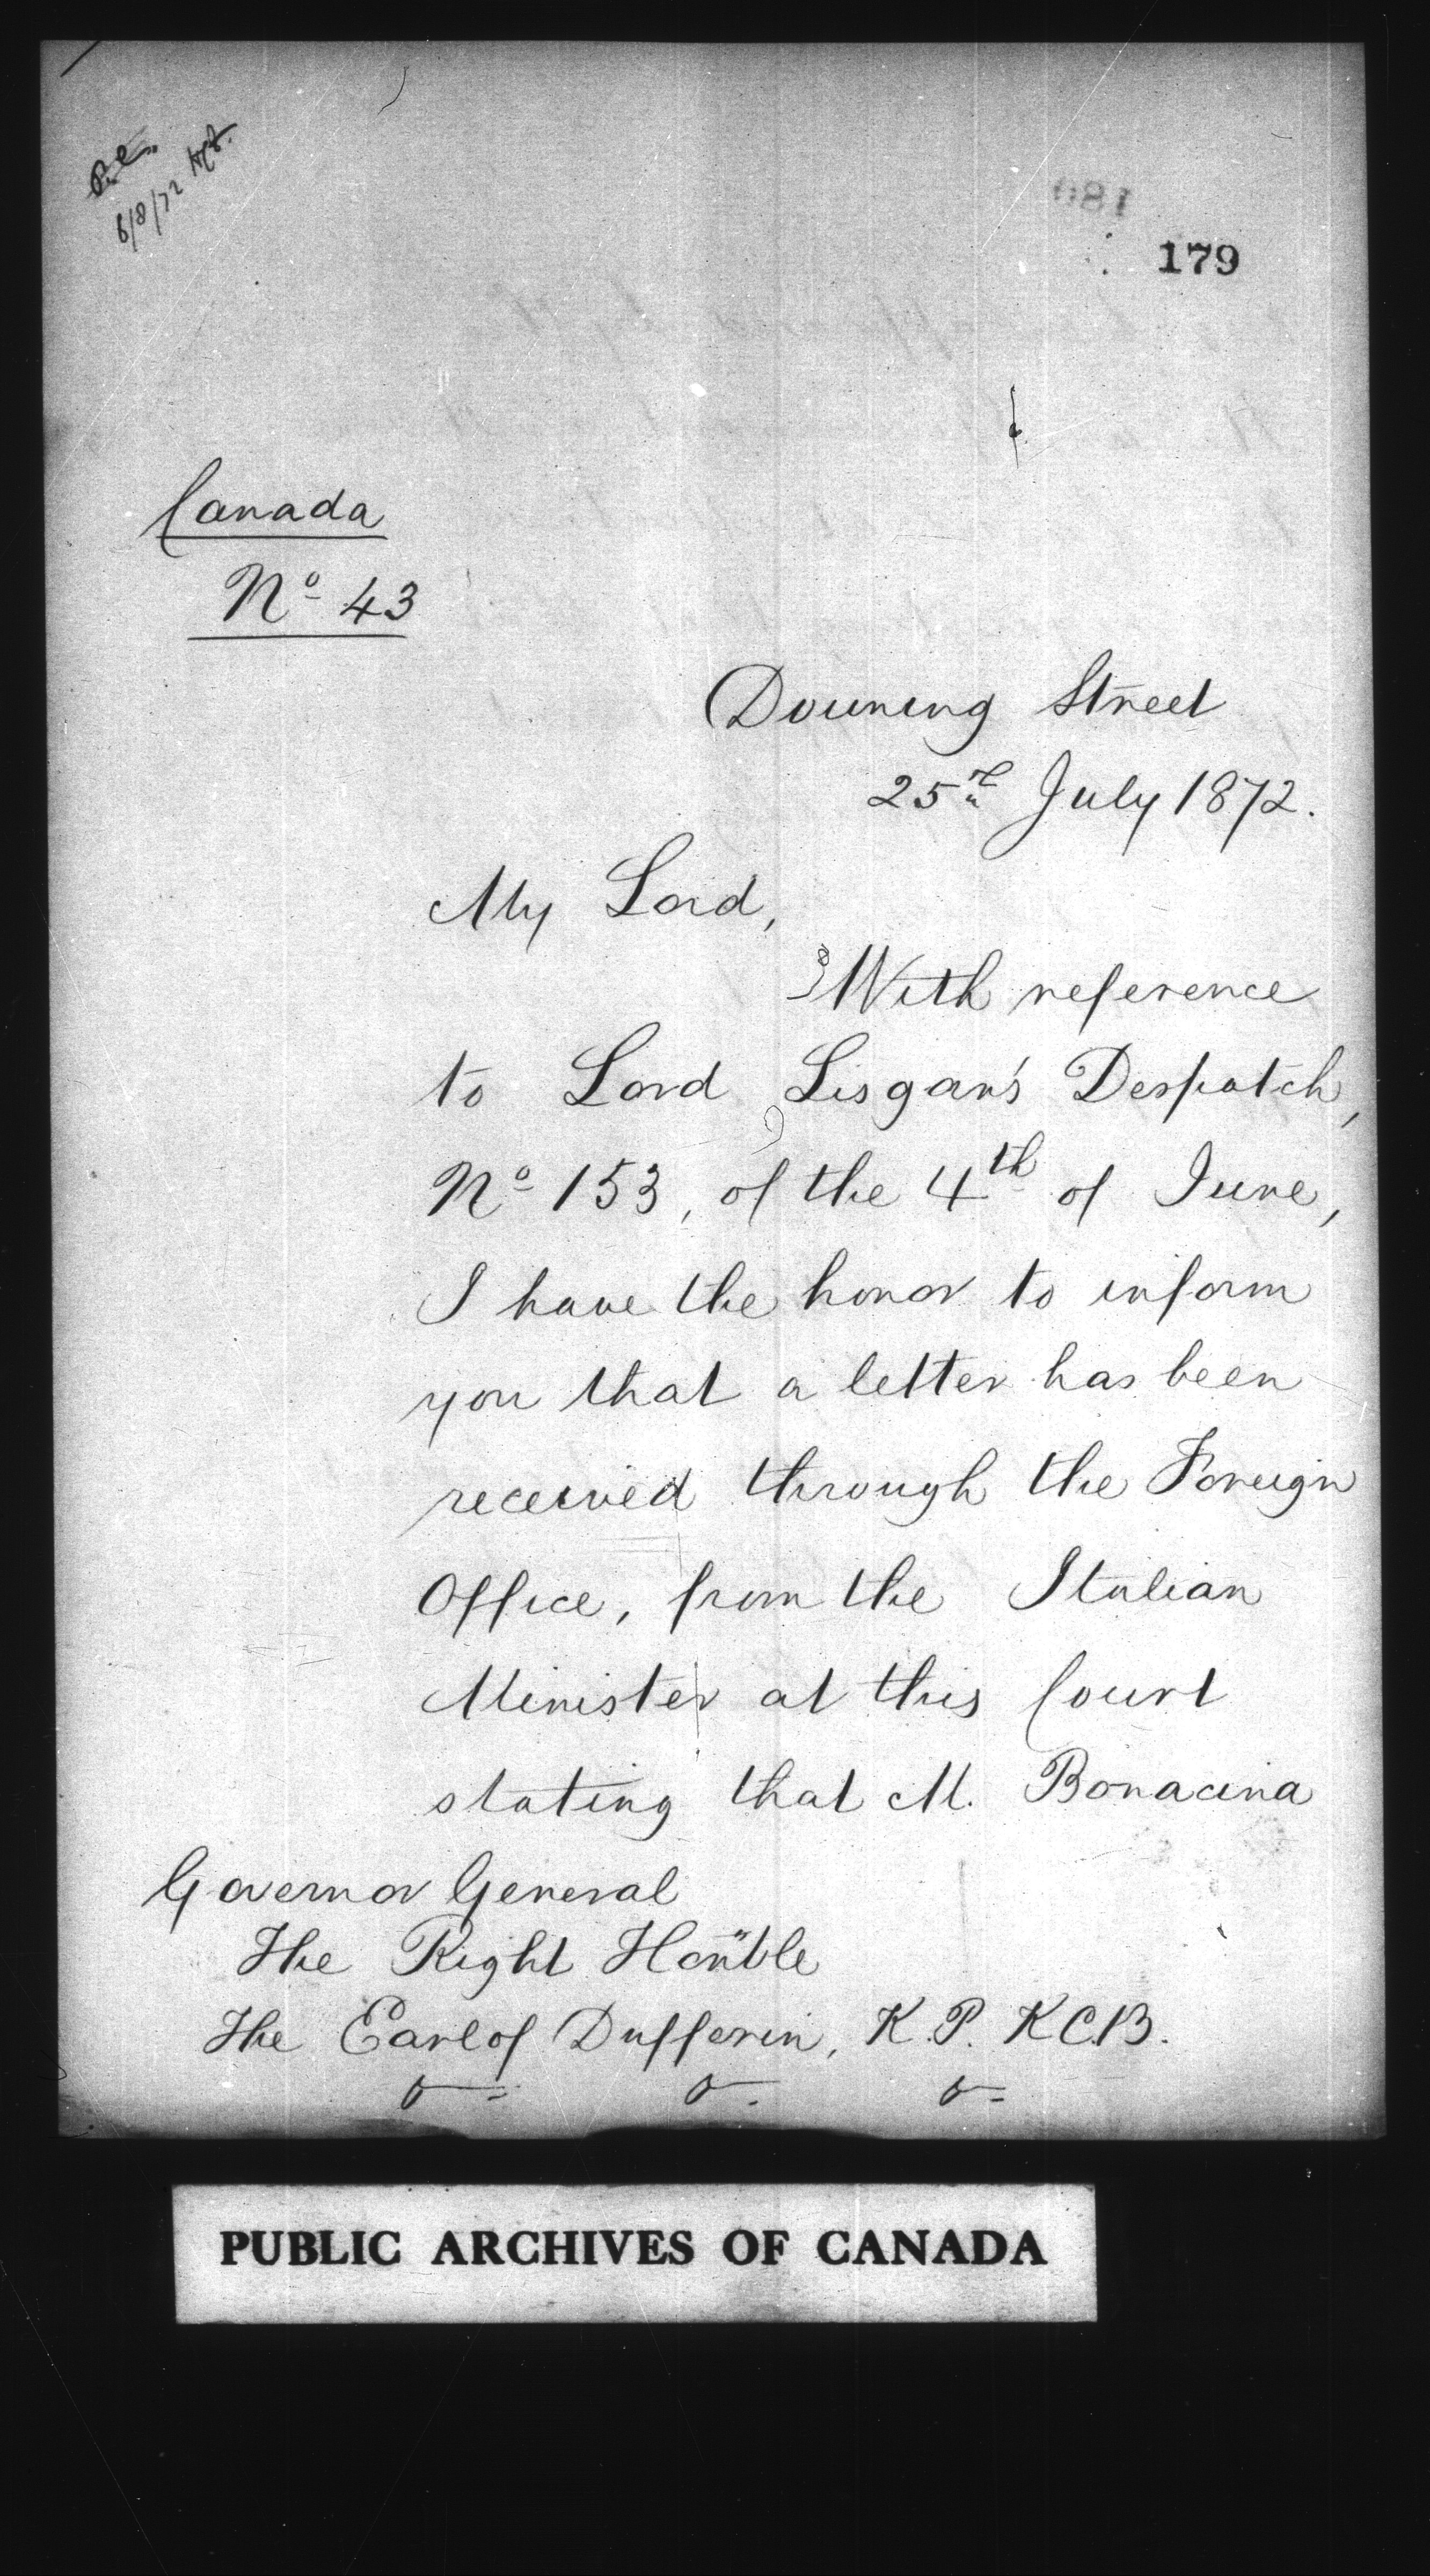 P.C.
6/8/72
179
Canada
Nº 43
Downing Street
25th July 1872.
My Lord,
With reference
to Lord Lisgar's Despatch,
Nº 153, of the 4th of June,
I have the honor to inform
you that a letter has been
received through the Foreign
Office, from the Italian
Minister at this Court
stating that M. Bonacina
Governor General
The Right Honble
The Earl of Dufferin, K.P. K.C.B.
PUBLIC ARCHIVES OF CANADA